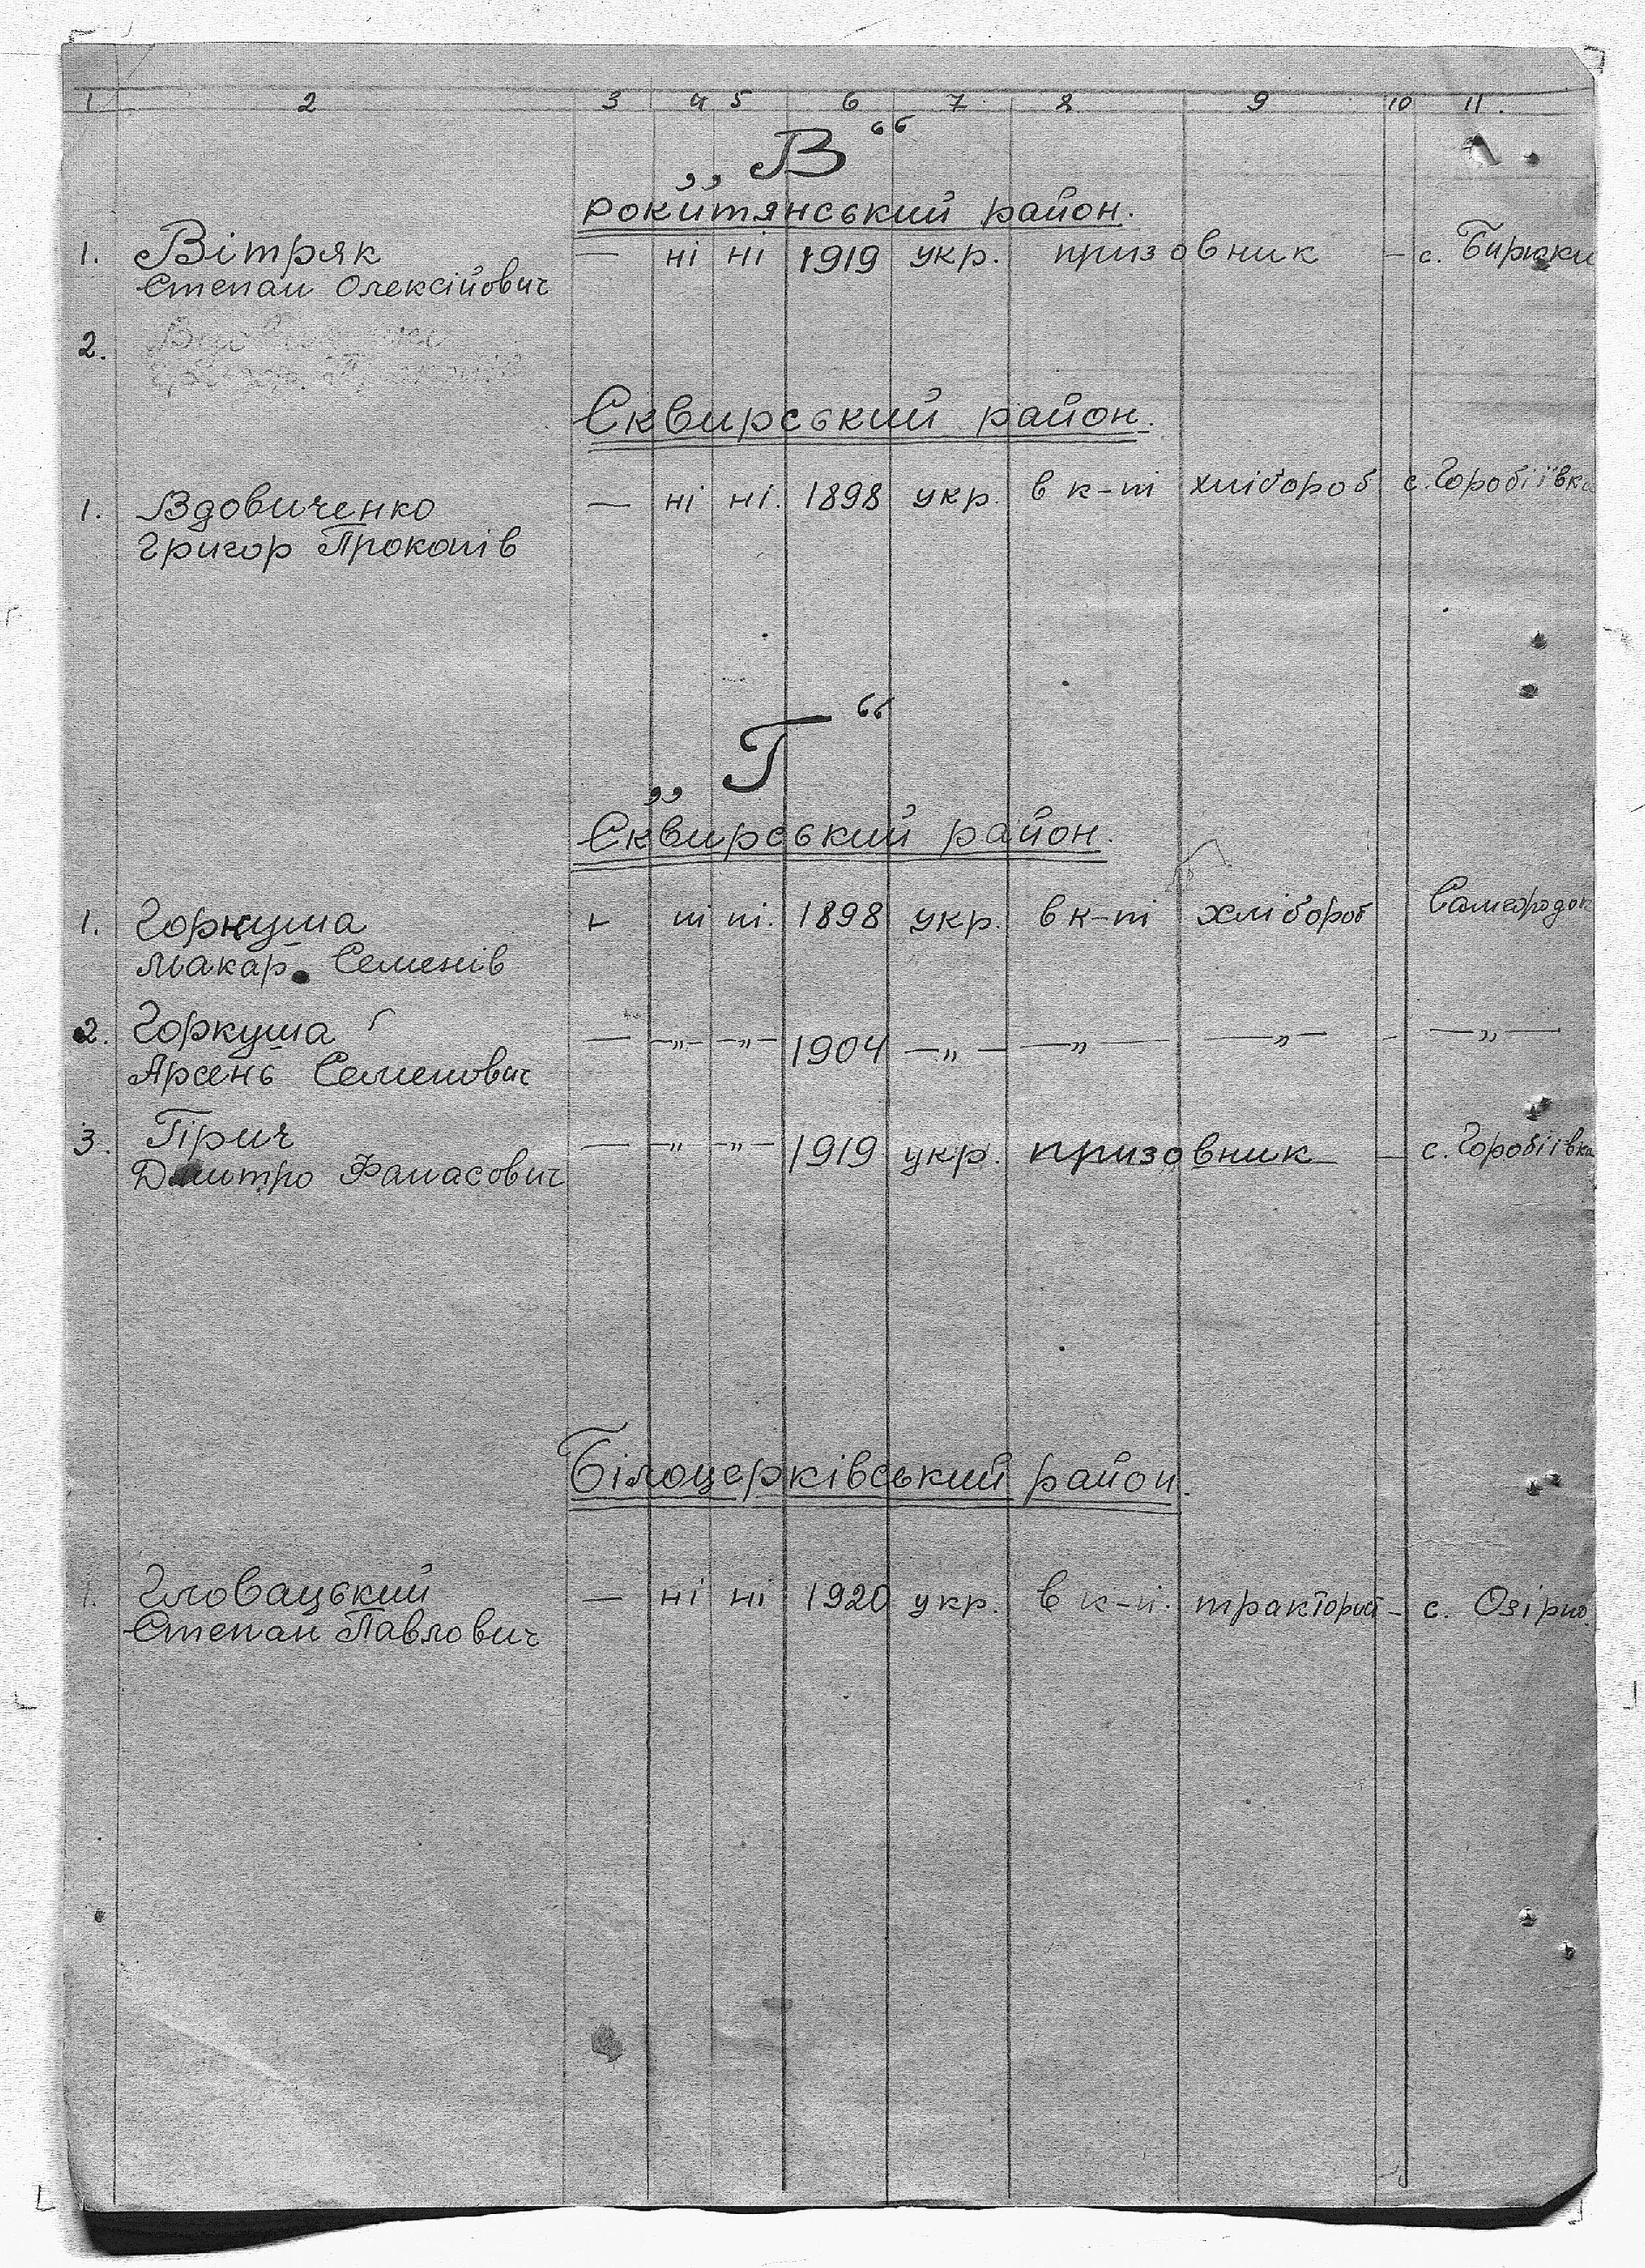 1 2 3 4 5 6 7 8 9 10 11.
„В“
Рокитянський район.
1. Вітряк — ні ні 1919 укр. призовник — с. Бирюки
Степан Олексійович
2.
Сквирський район.
1. Вдовиченко — ні ні. 1898 укр. в к-ті хлібороб с. Горобіївка
Григор Прокопів
„Г“
Сквирський район.
1. Горкуша — ні ні. 1898 укр. в к-ті хлібороб Самгородок
Макар. Семенів
2. Горкуша — —„— —„— 1904 —„— —„— —„— — —„—
Арсень Семенович
3. Гірич — —„— —„— 1919 укр. призовник — с. Горобіївка
Дмитро Фанасович
Білоцерківський район.
1. Гловацький — ні ні 1920 укр. в к-ті. тракторист — с. Озірно
Степан Павлович